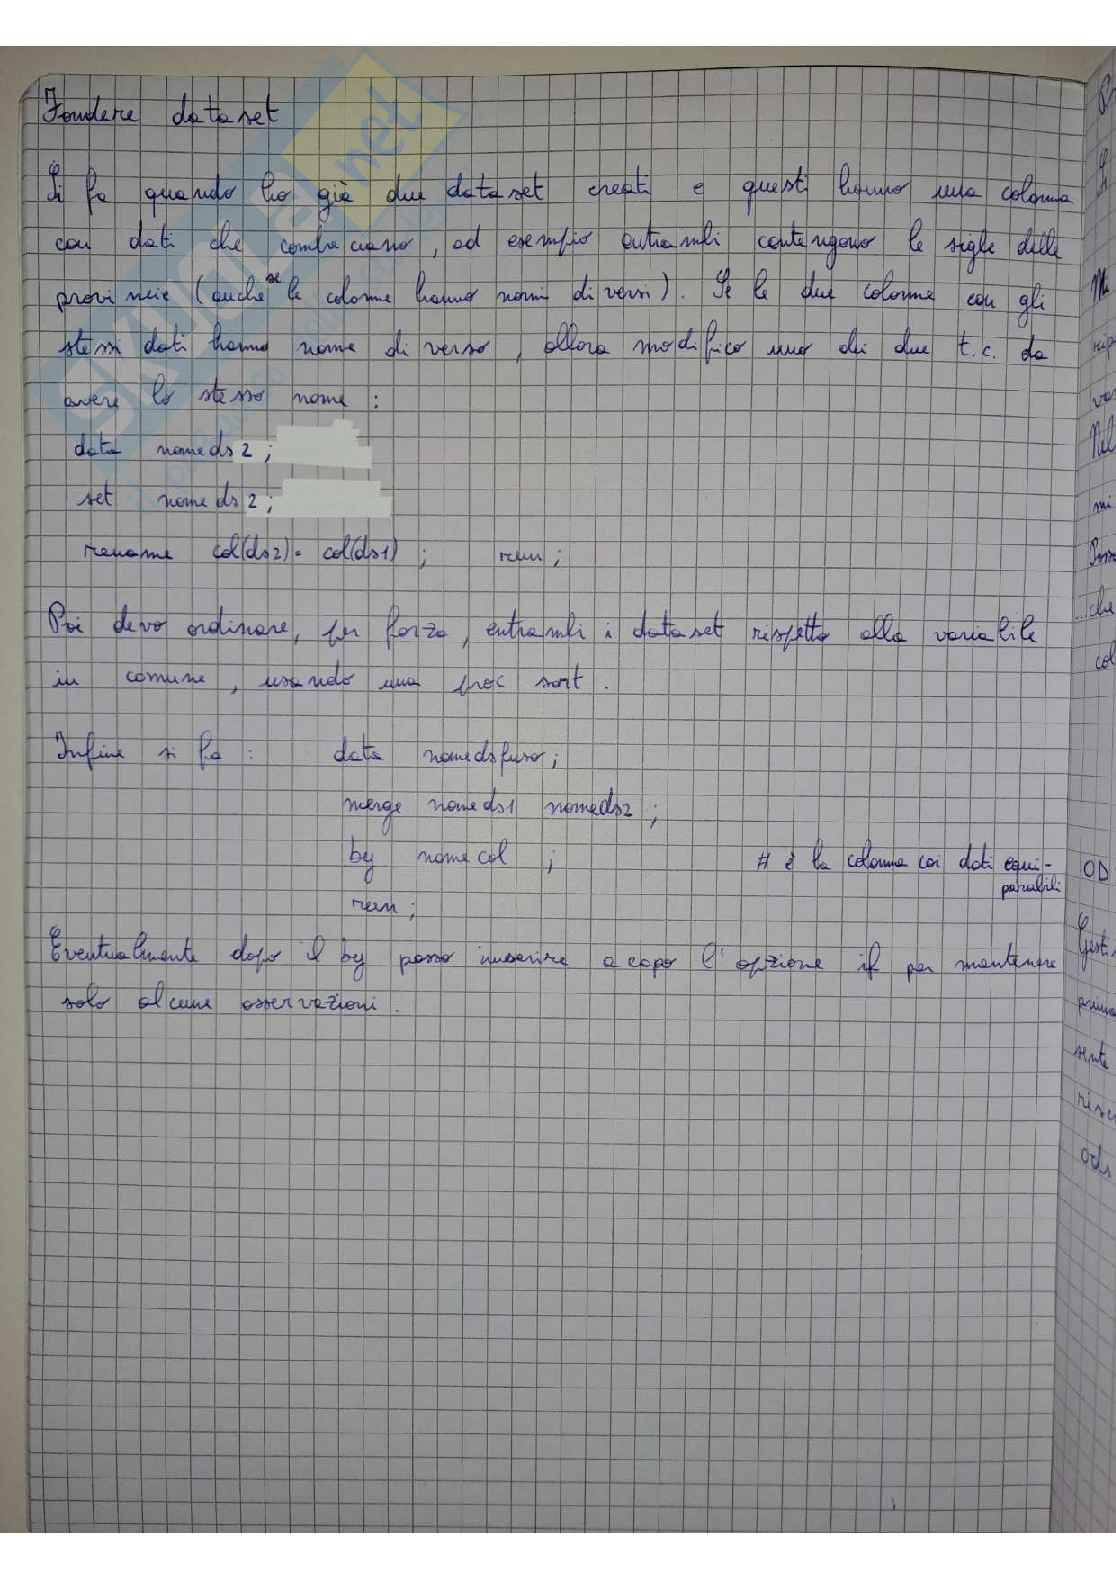 Fondere dataset
Si fa quando ho già due dataset creati e questi hanno una colonna
con dati che combaciano, ad esempio entrambi contengono le sigle delle
provincie (anche se le colonne hanno nomi diversi). Se le due colonne con gli
stessi dati hanno nome diverso, allora modifico uno dei due t.c. da
avere lo stesso nome :
data nomeds2 ;
set nomeds2 ;
rename col(ds2) = col(ds1) ; run ;
Poi devo ordinare, per forza, entrambi i dataset rispetto alla variabile
in comune, usando una proc sort.
Infine si fa : data nomedsfuso ;
merge nomeds1 nomeds2 ;
by nomecol ; # è la colonna coi dati equi-
parabili
run ;
Eventualmente dopo il by posso inserire a capo l'opzione if per mantenere
solo alcune osservazioni.